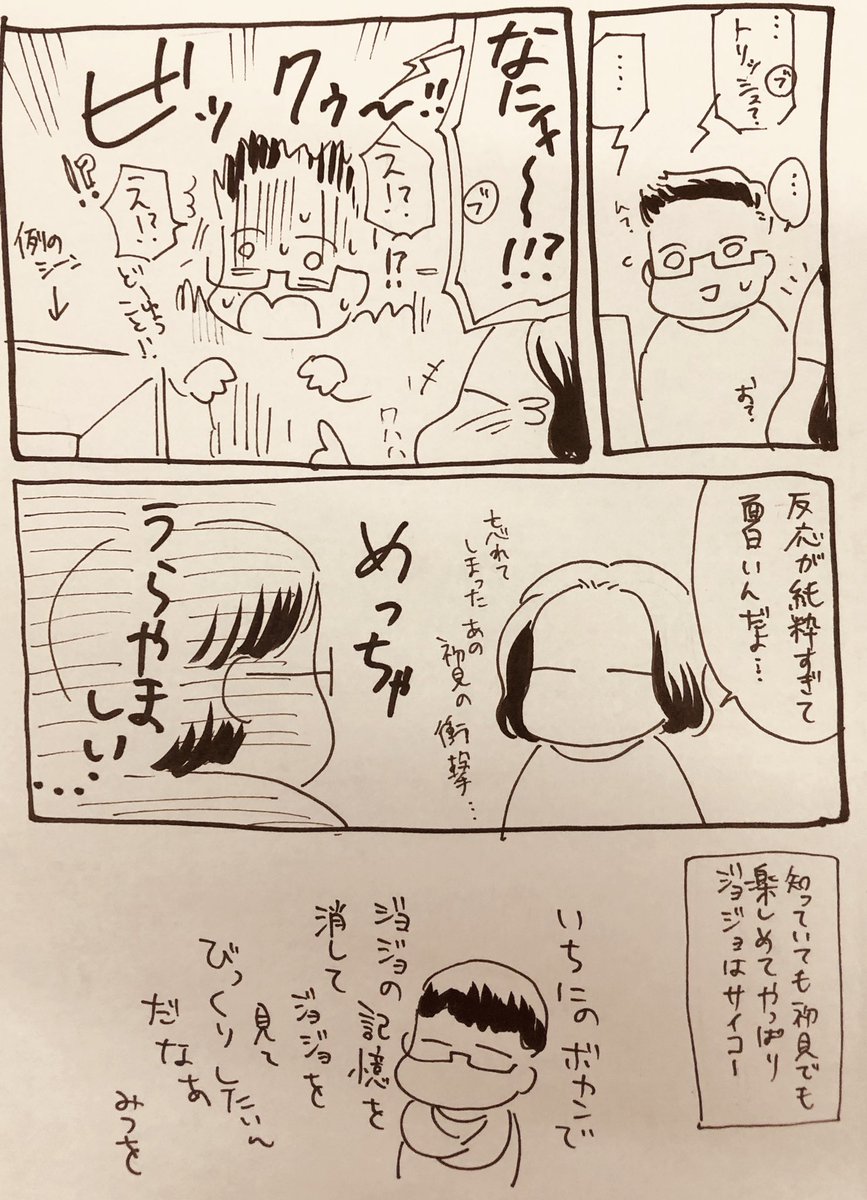 …
ブ
トリッシュ?
…
…
ん?
お?
なにィ〜〜!!?
ブ
ビックゥ〜!!
え!?
!?
え!?
!?
どーゆうこと!?
例の
シーン
↓
ワハハ
反応が純粋すぎて
面白いんだよ…
忘れて
しまったあの
初見の衝撃…
めっちゃ
うらやま
しい…
知っていても初見でも
楽しめてやっぱり
ジョジョはサイコー
いちにのポカンで
ジョジョの記憶を
消して
ジョジョを
見て
びっくりしたいん
だなあ
みつを